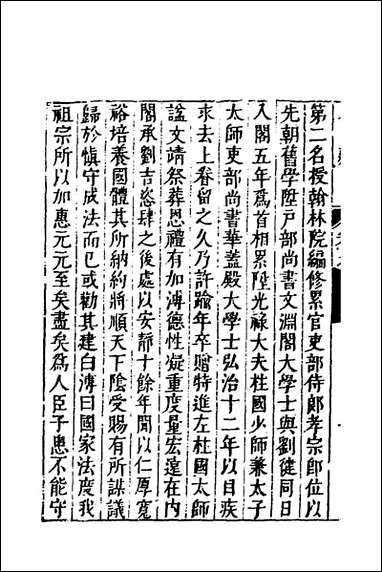 第二名授翰林院編修累官吏部侍郎孝宗即位以
先朝舊學陞戸部尚書文淵閣大學士與劉健同日
入閣五年爲首相累陞光祿大夫柱國少師兼太子
太師吏部尚書華蓋殿大學士弘治十二年以目疾
求去上眷留之久乃許踰年卒贈特進左柱國太師
諡文靖祭葬恩禮有加溥德性凝重度量宏遠在内
閣承劉吉恣肆之後處以安靜十餘年間以仁厚寬
裕培養國體其所納約將順天下陰受賜有所謀議
歸於慎守成法而已或勸其建白溥曰國家法度我
祖宗所以加惠元元至矣盡矣爲人臣子患不能守